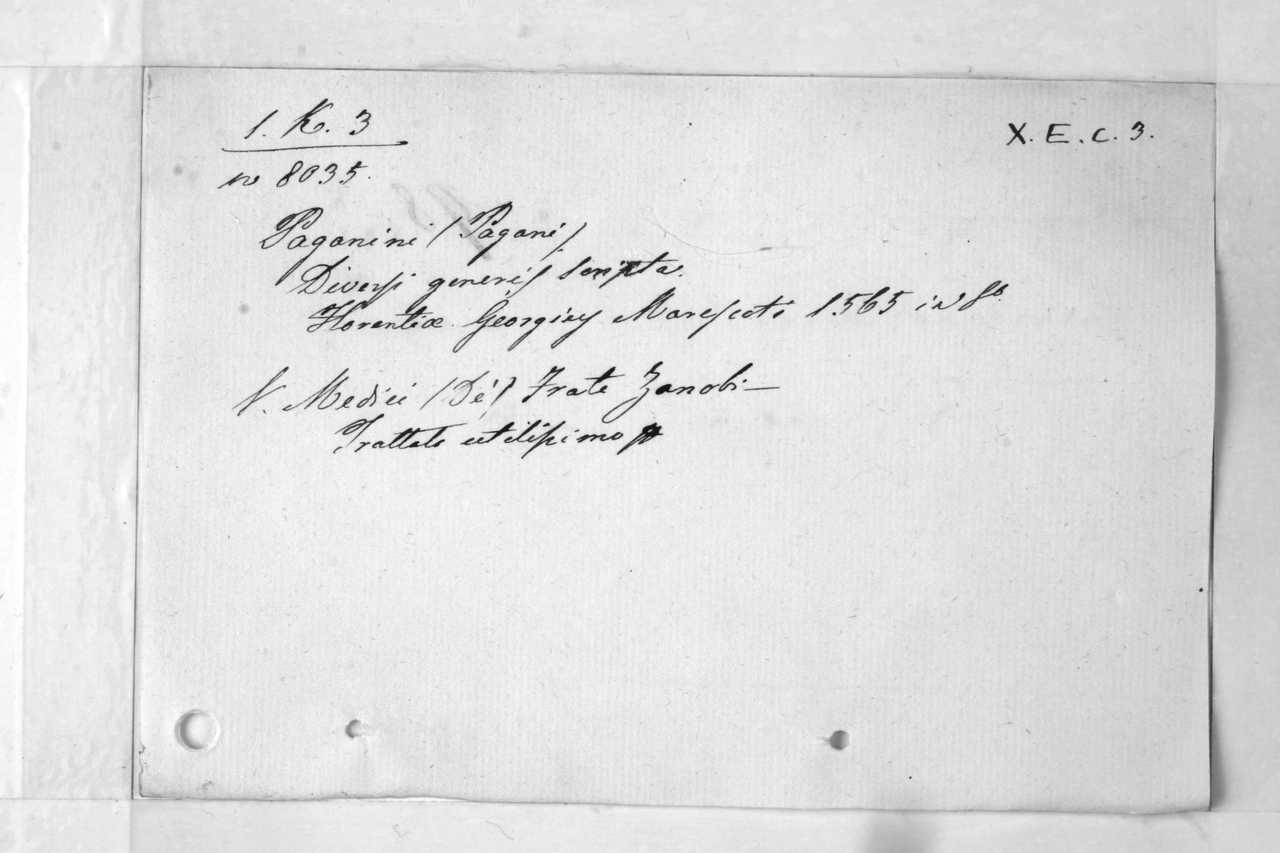 1. K. 3
X. E. c. 3.
no 8035.
Paganini (Pagani)
Diversi generis scripta.
Florentiæ. Georgius Marescoti 1565 in 8o
V. Medici (De') Frate Zanobi—
Trattato utilissimo